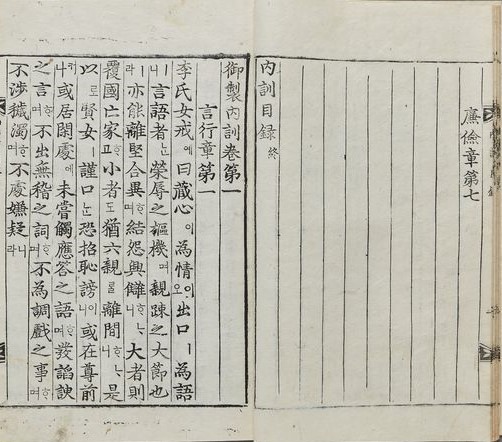 廉儉章第七
內訓目錄 終
御製內訓卷第一
言行章第一
李氏女戒예曰藏心이為情이오出口ㅣ為語
ㅣ니言語者ᄂᆞᆫ榮辱之樞機며親踈之大節也
라亦能離堅合異ᄒᆞ며結怨興讎ᄒᆞᄂᆞ니大者則
覆國亡家ᄒᆞ고小者도猶六親을離間ᄒᆞᄂᆞ니是
以로賢女ㅣ謹口ᄂᆞᆫ恐招恥謗이니或在尊前
커나或居閒處에未嘗觸應答之語ᄒᆞ며發諂諛
之言ᄒᆞ며不出無稽之詞ᄒᆞ며不為調戲之事ᄒᆞ며
不涉穢濁ᄒᆞ며不處嫌疑니라